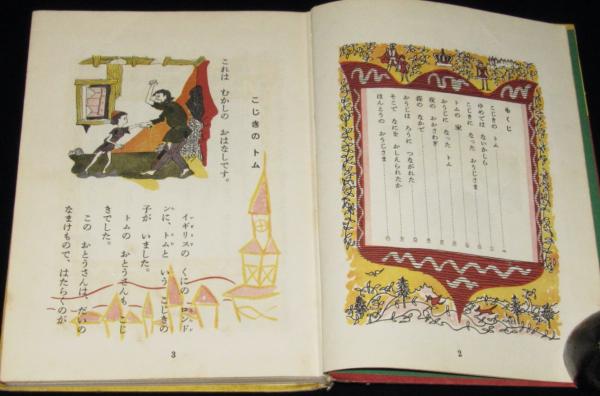 もくじ
こじきの トム
ゆめでは ないかしら
こじきに なった おうじさま
トムの 家
おうじに なった トム
夜の おおさわぎ
森の なかで
おうじは ろうに つながれた
そこで なにを おしえられたか
ほんとうの おうじさま
2
こじきの トム
これは むかしの おはなしです。
イギリスの くにの ロンド
ンに、トムと いう こじきの
子が いました。
トムの おとうさんも こじ
きでした。
この おとうさんは、だいの
なまけもので、はたらくのが
3